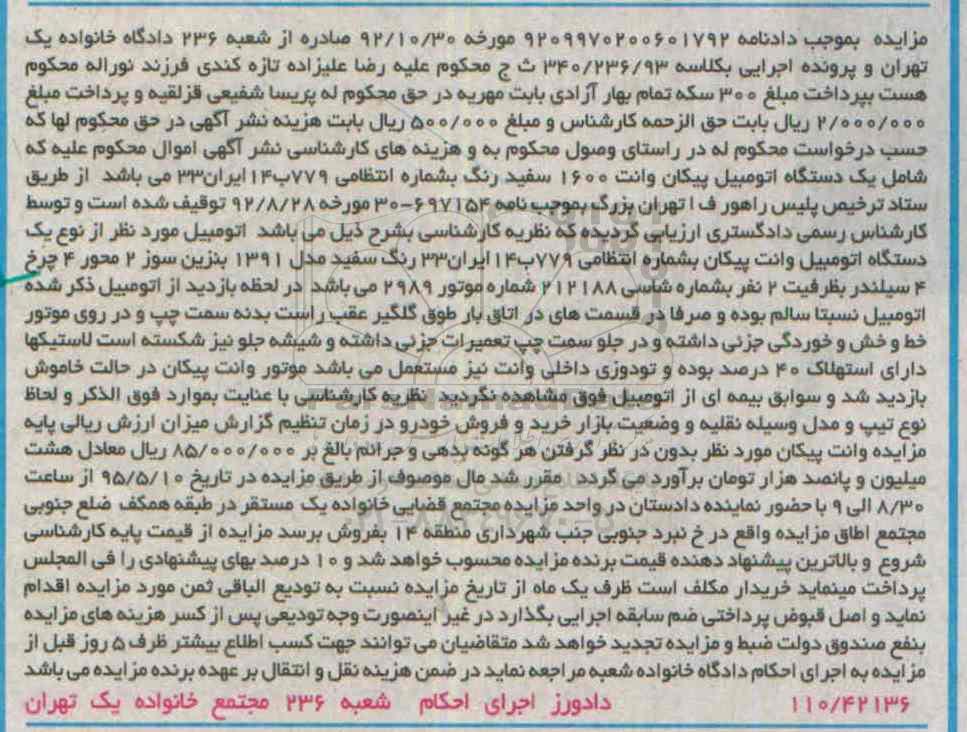 مزایده بموجب دادنامه ۹۲۰۹۹۷۰۲۰۰۶۰۱۷۹۲ مورخه ۹۲/۱۰/۳۰ صادره از شعبه ۲۳۶ دادگاه خانواده یک
تهران و پرونده اجرایی بکلاسه ۳۴۰/۲۳۶/۹۳ ث ج محکوم علیه رضا علیزاده تازه کندی فرزند نوراله محکوم
هست بپرداخت مبلغ ۳۰۰ سکه تمام بهار آزادی بابت مهریه در حق محکوم له پریسا شفیعی قزلقیه و پرداخت مبلغ
۲/۰۰۰/۰۰۰ ریال بابت حق الزحمه کارشناس و مبلغ ۵۰۰/۰۰۰ ریال بابت هزینه نشر آگهی در حق محکوم لها که
حسب درخواست محکوم له در راستای وصول محکوم به و هزینه های کارشناسی نشر آگهی اموال محکوم علیه که
شامل یک دستگاه اتومبیل پیکان وانت ۱۶۰۰ سفید رنگ بشماره انتظامی ۷۷۹ب۱۴ایران۳۳ می باشد از طریق
ستاد ترخیص پلیس راهور ف ا تهران بزرگ بموجب نامه ۶۹۷۱۵۴-۳۰ مورخه ۹۲/۸/۲۸ توقیف شده است و توسط
کارشناس رسمی دادگستری ارزیابی گردیده که نظریه کارشناسی بشرح ذیل می باشد اتومبیل مورد نظر از نوع یک
دستگاه اتومبیل وانت پیکان بشماره انتظامی ۷۷۹ب۱۴ایران۳۳ رنگ سفید مدل ۱۳۹۱ بنزین سوز ۲ محور ۴ چرخ
۴ سیلندر بظرفیت ۲ نفر بشماره شاسی ۲۱۲۱۸۸ شماره موتور ۲۹۸۹ می باشد در لحظه بازدید از اتومبیل ذکر شده
اتومبیل نسبتا سالم بوده و صرفا در قسمت های در اتاق بار طوق گلگیر عقب راست بدنه سمت چپ و در روی موتور
خط و خش و خوردگی جزئی داشته و در جلو سمت چپ تعمیرات جزئی داشته و شیشه جلو نیز شکسته است لاستیکها
دارای استهلاک ۴۰ درصد بوده و تودوزی داخلی وانت نیز مستعمل می باشد موتور وانت پیکان در حالت خاموش
بازدید شد و سوابق بیمه ای از اتومبیل فوق مشاهده نگردید نظریه کارشناسی با عنایت بموارد فوق الذکر و لحاظ
نوع تیپ و مدل وسیله نقلیه و وضعیت بازار خرید و فروش خودرو در زمان تنظیم گزارش میزان ارزش ریالی پایه
مزایده وانت پیکان مورد نظر بدون در نظر گرفتن هر گونه بدهی و جرائم بالغ بر ۸۵/۰۰۰/۰۰۰ ریال معادل هشت
میلیون و پانصد هزار تومان برآورد می گردد مقرر شد مال موصوف از طریق مزایده در تاریخ ۹۵/۵/۱۰ از ساعت
۸/۳۰ الی ۹ با حضور نماینده دادستان در واحد مزایده مجتمع قضایی خانواده یک مستقر در طبقه همکف ضلع جنوبی
مجتمع اطاق مزایده واقع در خ نبرد جنوبی جنب شهرداری منطقه ۱۴ بفروش برسد مزایده از قیمت پایه کارشناسی
شروع و بالاترین پیشنهاد دهنده قیمت برنده مزایده محسوب خواهد شد و ۱۰ درصد بهای پیشنهادی را فی المجلس
پرداخت مینماید خریدار مکلف است ظرف یک ماه از تاریخ مزایده نسبت به تودیع الباقی ثمن مورد مزایده اقدام
نماید و اصل قبوض پرداختی ضم سابقه اجرایی بگذارد در غیر اینصورت وجه تودیعی پس از کسر هزینه های مزایده
بنفع صندوق دولت ضبط و مزایده تجدید خواهد شد متقاضیان می توانند جهت کسب اطلاع بیشتر ظرف ۵ روز قبل از
مزایده به اجرای احکام دادگاه خانواده شعبه مراجعه نماید در ضمن هزینه نقل و انتقال بر عهده برنده مزایده می باشد
۱۱۰/۴۲۱۳۶ دادورز اجرای احکام شعبه ۲۳۶ مجتمع خانواده یک تهران
ParsNamadData